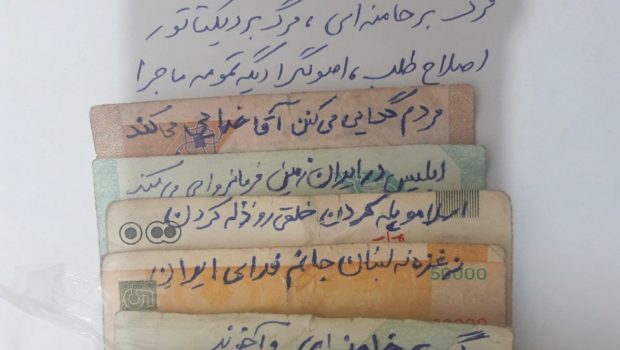 مرگ بر خامنه ای، مرگ بر دیکتاتور
اصلاح طلب، اصولگرا دیگه تمومه ماجرا
مردم گدایی می کنن آقا خدایی می کند
ابلیس در ایران زمین فرمانروایی می کند
اسلامو پله کردن خلقی رو ذله کردن
نه غزه نه لبنان جانم فدای ایران
50000
بر خامنه ای و آخوند